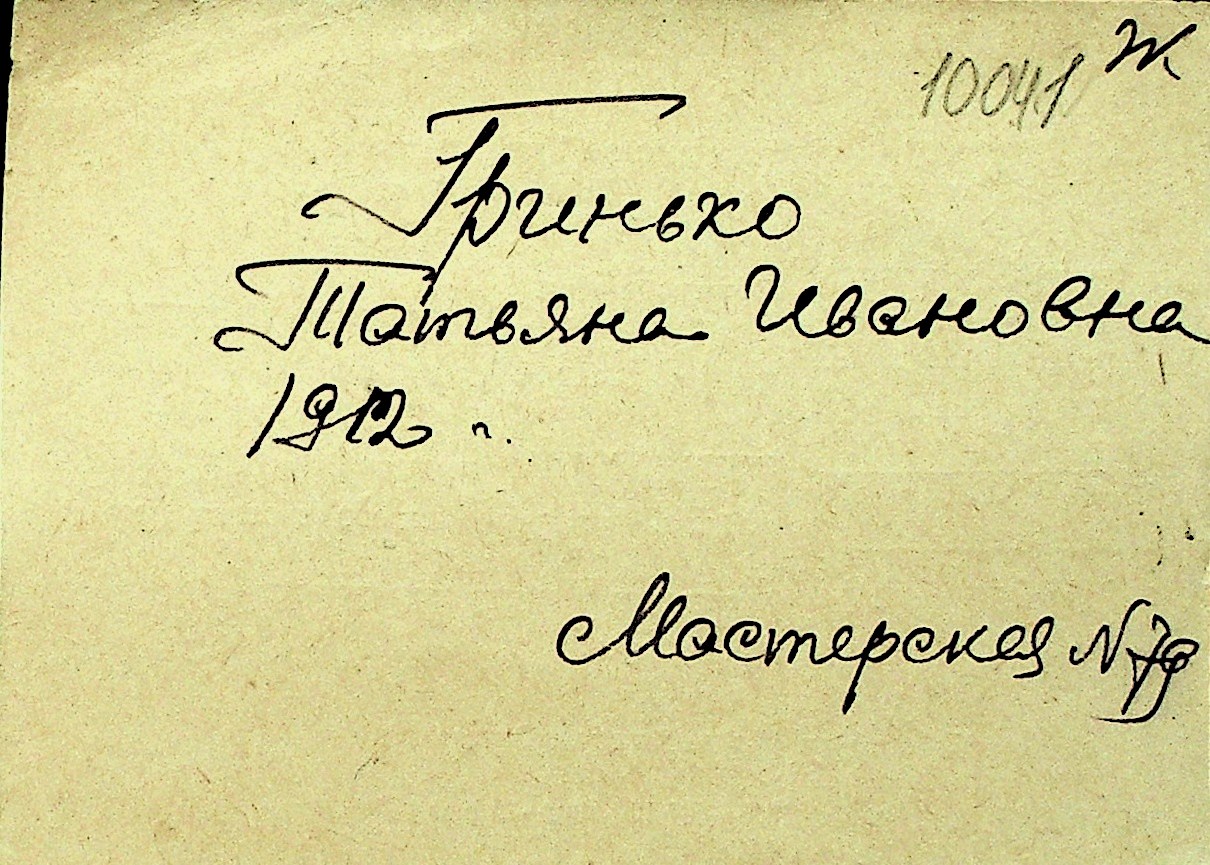 10041 Ж
Гринько
Татьяна Ивановна
1912 г.
Мастерская N